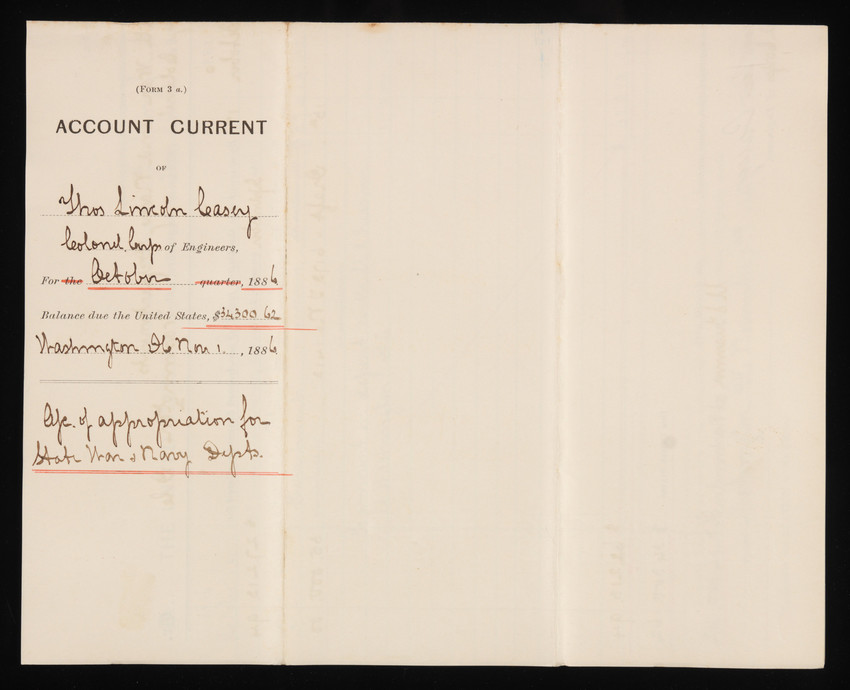 (FORM 3 a.)
ACCOUNT CURRENT
OF
Thos Lincoln Casey
Colonel, Corps of Engineers,
For the October quarter, 1886
Balance due the United States, $34300 62
Washington DC Nov 1, 1886
A/c. of appropriation for
State War & Navy Depts.